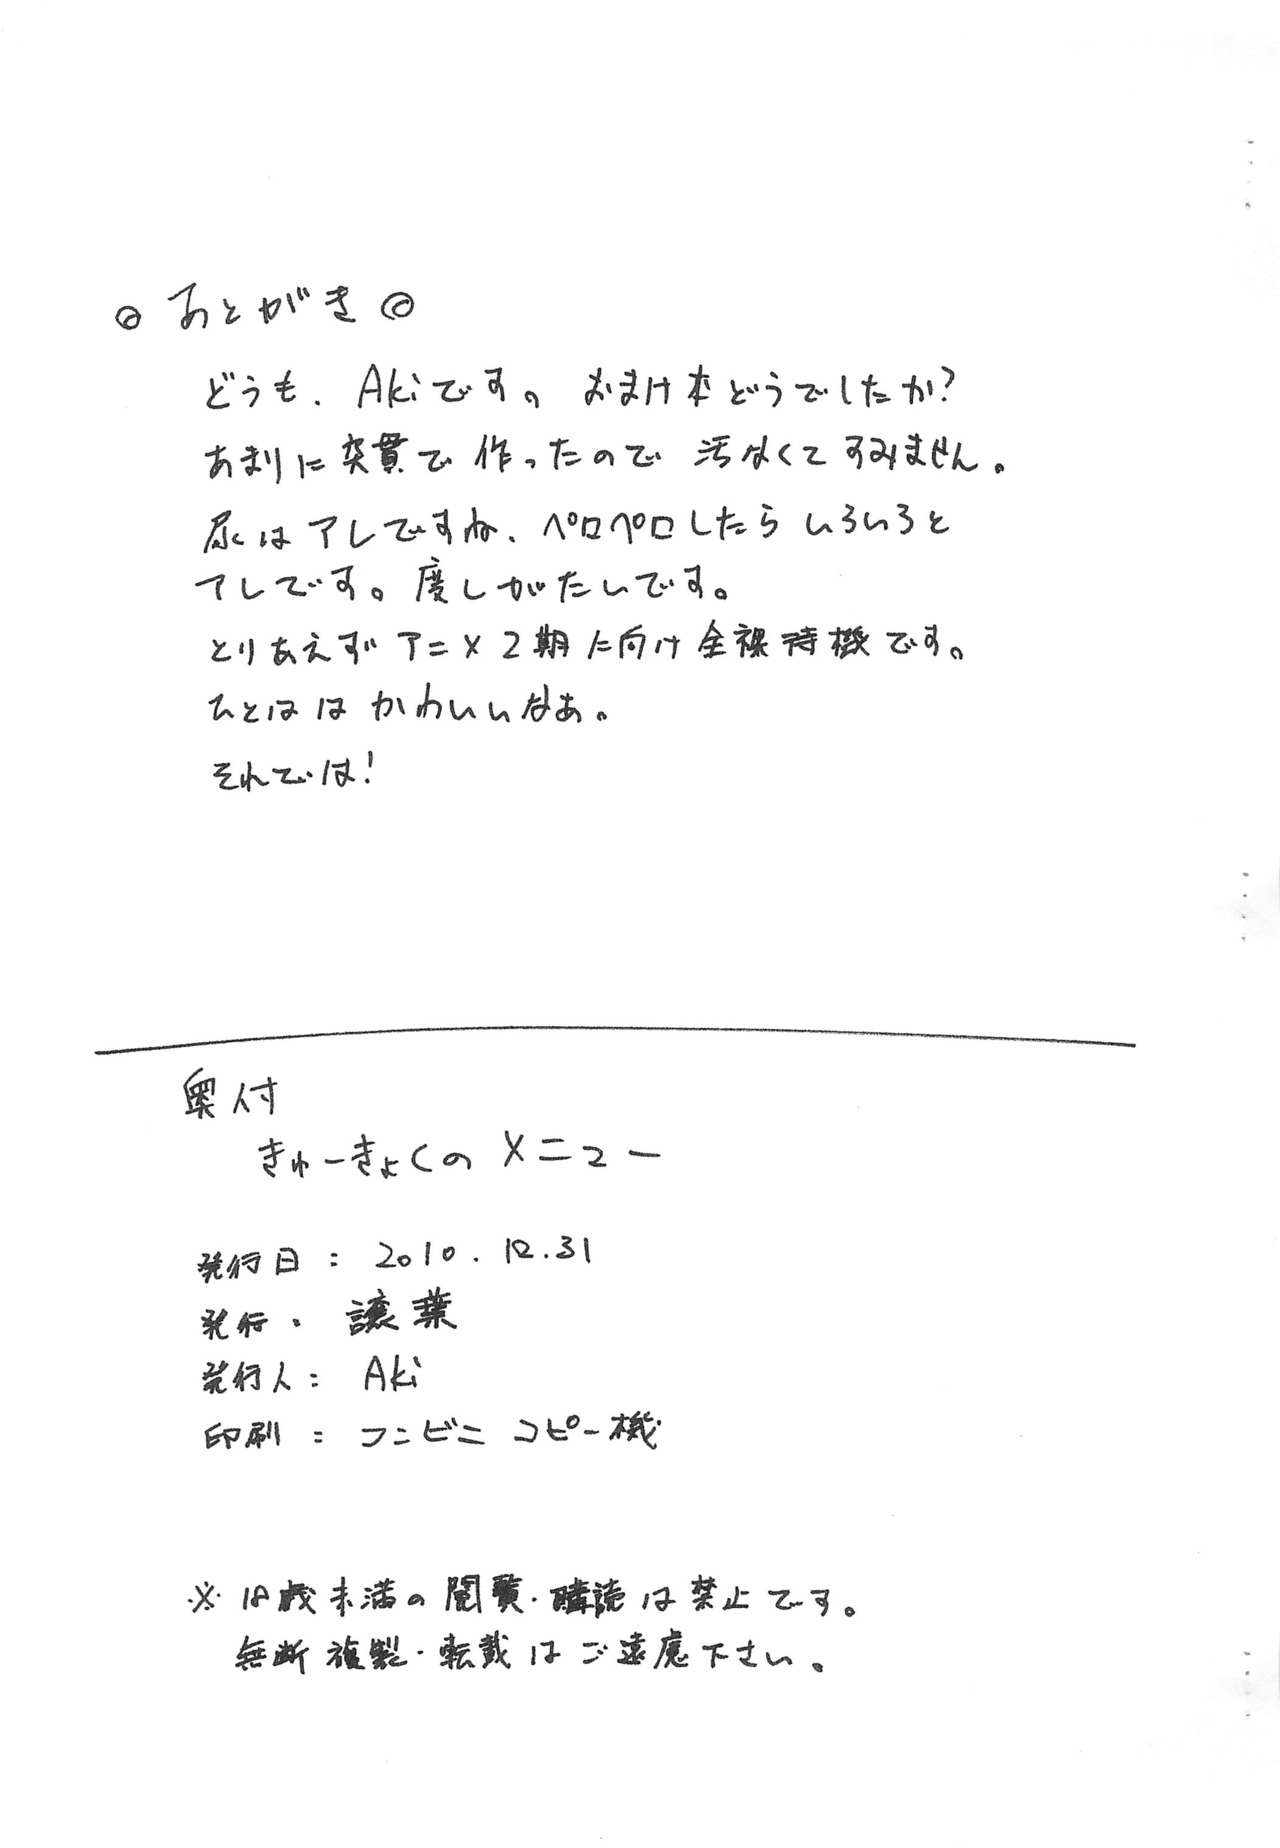 ◎ あとがき ◎
どうも、Akiです。おまけ本どうでしたか?
あまりに突貫で作ったので汚なくてすみません。
尿はアレですね、ペロペロしたらいろいろと
アレです。度しがたいです。
とりあえずアニメ2期に向け全裸待機です。
ひとははかわいいなぁ。
それでは!
奥付
きゅーきょくのメニュー
発行日:2010.12.31
発行:譲葉
発行人:Aki
印刷:コンビニコピー機
※18歳未満の閲覧・購読は禁止です。
無断複製・転載はご遠慮下さい。